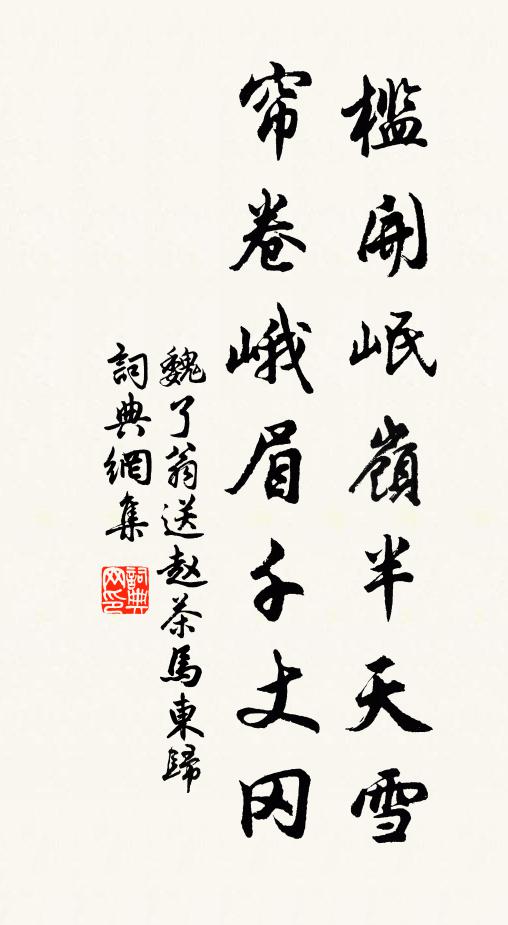 槛開岷嶺半天雪
帘卷峨眉千丈冈
魏了翁送赵茶馬東歸
詞典網集
詞典网印